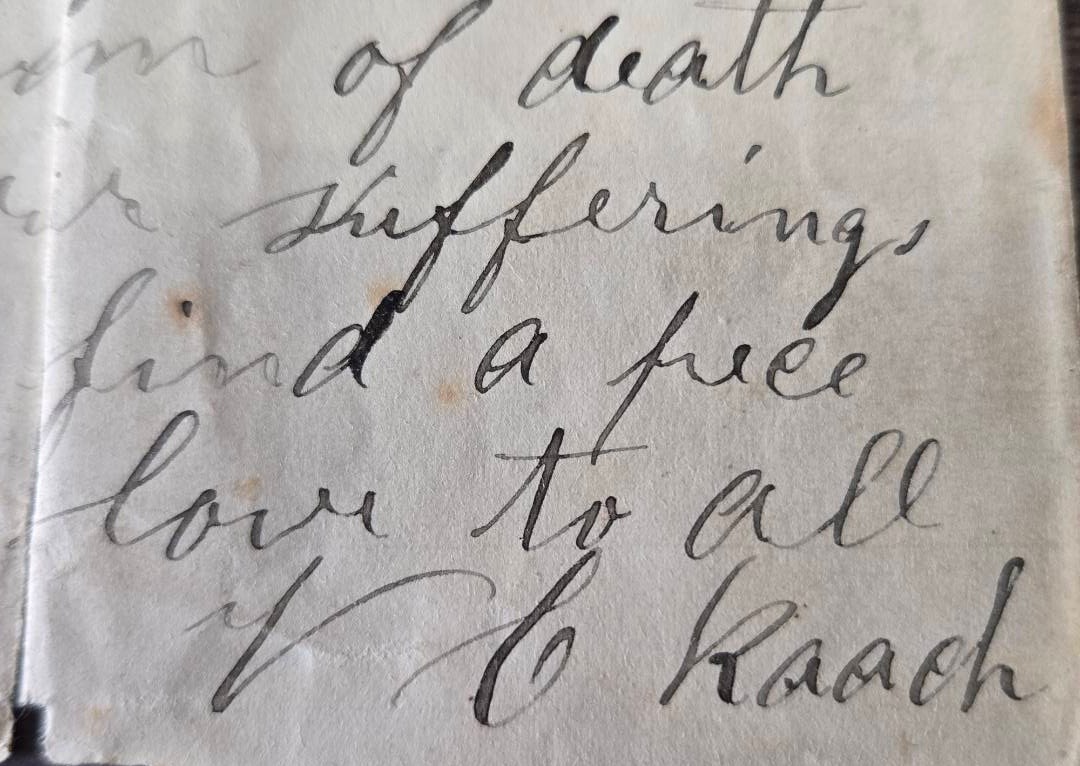 of death
sufferings
find a piece
love to all
V C Kaach